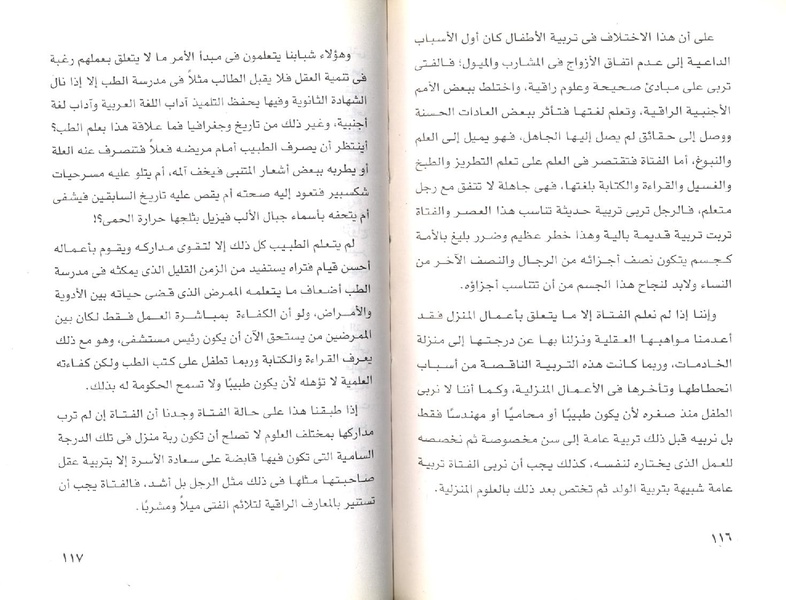 على أن هذا الاختلاف فى تربية الأطفال كان أول الأسباب
الداعية إلى عدم اتفاق الأزواج فى المشارب والميول؛ فالفتى
تربى على مبادئ صحيحة وعلوم راقية، واختلط ببعض الأمم
الأجنبية الراقية، وتعلم لغتها فتأثر ببعض العادات الحسنة
ووصل إلى حقائق لم يصل إليها الجاهل، فهو يميل إلى العلم
والنبوغ، أما الفتاة فتقتصر فى العلم على تعلم التطريز والطبخ
والغسيل والقراءة والكتابة بلغتها، فهى جاهلة لا تتفق مع رجل
متعلم، فالرجل تربى تربية حديثة تناسب هذا العصر والفتاة
تربت تربية قديمة بالية وهذا خطر عظيم وضرر بليغ بالأمة
كجسم يتكون نصف أجزائه من الرجال والنصف الآخر من
النساء ولابد لنجاح هذا الجسم من أن تتناسب أجزاؤه.
وإننا إذا لم نعلم الفتاة إلا ما يتعلق بأعمال المنزل فقد
أعدمنا مواهبها العقلية ونزلنا بها عن درجتها إلى منزلة
الخادمات، وربما كانت هذه التربية الناقصة من أسباب
انحطاطها وتأخرها فى الأعمال المنزلية، وكما أننا لا نربى
الطفل منذ صغره لأن يكون طبيبًا أو محاميًا أو مهندسًا فقط
بل نربيه قبل ذلك تربية عامة إلى سن مخصوصة ثم نخصصه
للعمل الذى يختاره لنفسه، كذلك يجب أن نربى الفتاة تربية
عامة شبيهة بتربية الولد ثم تختص بعد ذلك بالعلوم المنزلية.
١١٦
وهؤلاء شبابنا يتعلمون فى مبدأ الأمر ما لا يتعلق بعملهم رغبة
فى تنمية العقل فلا يقبل الطالب مثلاً فى مدرسة الطب إلا إذا نال
الشهادة الثانوية وفيها يحفظ التلميذ آداب اللغة العربية وآداب لغة
أجنبية، وغير ذلك من تاريخ وجغرافيا فما علاقة هذا بعلم الطب؟
أينتظر أن يصرف الطبيب أمام مريضه فعلاً فتنصرف عنه العلة
أو يطربه ببعض أشعار المتنبى فيخف ألمه، أم يتلو عليه مسرحيات
شكسبير فتعود إليه صحته أم يقص عليه تاريخ السابقين فيشفى
أم يتحفه بأسماء جبال الألب فيزيل بثلجها حرارة الحمى؟!
لم يتعلم الطبيب كل ذلك إلا لتقوى مداركه ويقوم بأعماله
أحسن قيام فتراه يستفيد من الزمن القليل الذى يمكثه فى مدرسة
الطب أضعاف ما يتعلمه الممرض الذى قضى حياته بين الأدوية
والأمراض، ولو أن الكفاءة بمباشرة العمل فقط لكان بين
الممرضين من يستحق الآن أن يكون رئيس مستشفى، وهو مع ذلك
يعرف القراءة والكتابة وربما تطفل على كتب الطب ولكن كفاءته
العلمية لا تؤهله لأن يكون طبيبًا ولا تسمح الحكومة له بذلك.
إذا طبقنا هذا على حالة الفتاة وجدنا أن الفتاة إن لم ترب
مداركها بمختلف العلوم لا تصلح أن تكون ربة منزل فى تلك الدرجة
السامية التى تكون فيها قابضة على سعادة الأسرة إلا بتربية عقل
صاحبتها مثلها فى ذلك مثل الرجل بل أشد، فالفتاة يجب أن
تستنير بالمعارف الراقية لتلائم الفتى ميلاً ومشربًا.
١١٧